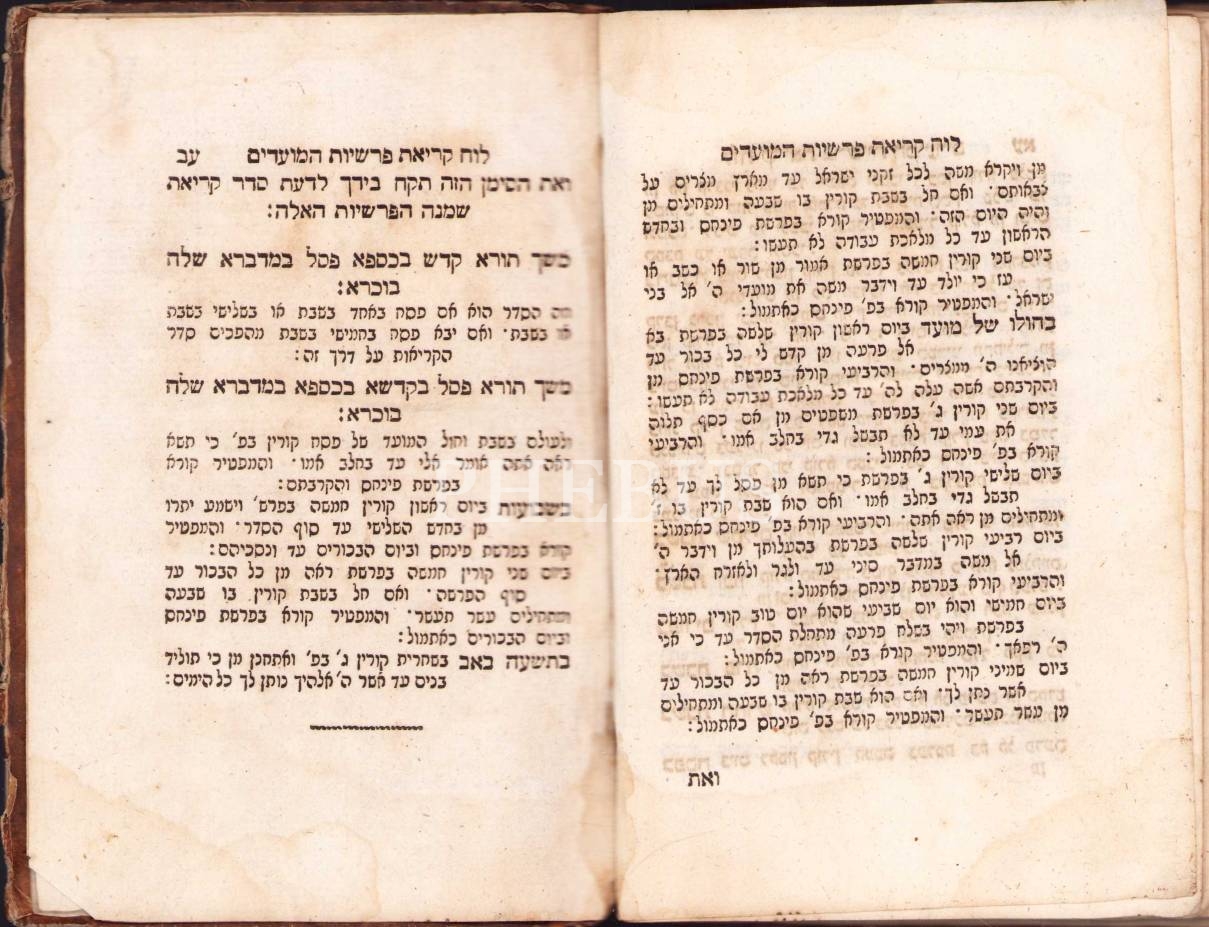 לוח קריאת פרשיות המועדים
מן ויקרא משה לכל זקני ישראל עד מארץ מצרים על
צבאותם · ואם חל בשבת קורין בו שבעה ומתחילים מן
והיה היום הזה · והמפטיר קורא בפרשת פינחם ובחדש
הראשון עד כל מלאכת עבודה לא תעשו :
ביום שני קורין חמשה בפרשת אמור מן שור או כשב או
עז כי יולד עד וידבר משה את מועדי ה' אל בני
ישראל · והמפטיר קורא בפ' פינחם כאתמול :
בחולו של מועד ביום ראשון קורין שלשה בפרשת בא
אל פרעה מן קדש לי כל בכור עד
הוציאנו ה' ממצרים · והרביעי קורא בפרשת פינחם מן
והקרבתם אשה עלה לה' עד כל מלאכת עבודה לא תעשו :
ביום שני קורין ג' בפרשת משפטים מן אם כסף תלוה
את עמי עד לא תבשל גדי בחלב אמו · והרביעי
קורא בפ' פינחם כאתמול :
ביום שלישי קורין ג' בפרשת כי תשא מן פסל לך עד לא
תבשל גדי בחלב אמו · ואם הוא שבת קורין בו ז'
ומתחילים מן ראה אתה · והרביעי קורא בפ' פינחם כאתמול :
ביום רביעי קורין שלשה בפרשת בהעלותך מן וידבר ה'
אל משה במדבר סיני עד ולגר ולאזרח הארץ ·
והרביעי קורא בפרשת פינחם כאתמול :
ביום חמישי והוא יום שביעי שהוא יום טוב קורין חמשה
בפרשת ויהי בשלח פרעה מתחלת הסדר עד כי אני
ה' רפאך · והמפטיר קורא בפ' פינחם כאתמול :
ביום שמיני קורין חמשה בפרשת ראה מן כל הבכור עד
אשר נתן לך · ואם הוא שבת קורין בו שבעה ומתחילים
מן עשר תעשר · והמפטיר קורא בפ' פינחם כאתמול :
ואת
לוח קריאת פרשיות המועדים עב
ואת הסימן הזה תקח בידך לדעת סדר קריאת
שמנה הפרשיות האלה :
משך תורא קדש בכספא פסל במדברא שלח
בוכרא :
זה הסדר הוא אם פסח באחד בשבת או בשלישי בשבת
או בשבת · ואם יבא פסח בחמישי בשבת מהפכים סדר
הקריאות על דרך זה :
משך תורא פסל בקדשא בכספא במדברא שלח
בוכרא :
ולעולם בשבת וחול המועד של פסח קורין בפ' כי תשא
ראה אתה אומר אלי עד בחלב אמו · והמפטיר קורא
בפרשת פינחם והקרבתם :
בשבועות ביום ראשון קורין חמשה בפרש' וישמע יתרו
מן בחדש השלישי עד סוף הסדר · והמפטיר
קורא בפרשת פינחם וביום הבכורים עד ונסכיהם :
ביום שני קורין חמשה בפרשת ראה מן כל הבכור עד
סוף הפרשה · ואם חל בשבת קורין בו שבעה
ומתחילים עשר תעשר · והמפטיר קורא בפרשת פינחם
וביום הבכורים כאתמול :
בתשעה באב בשחרית קורין ג' בפ' ואתחנן מן כי תוליד
בנים עד אשר ה' אלהיך נותן לך כל הימים :